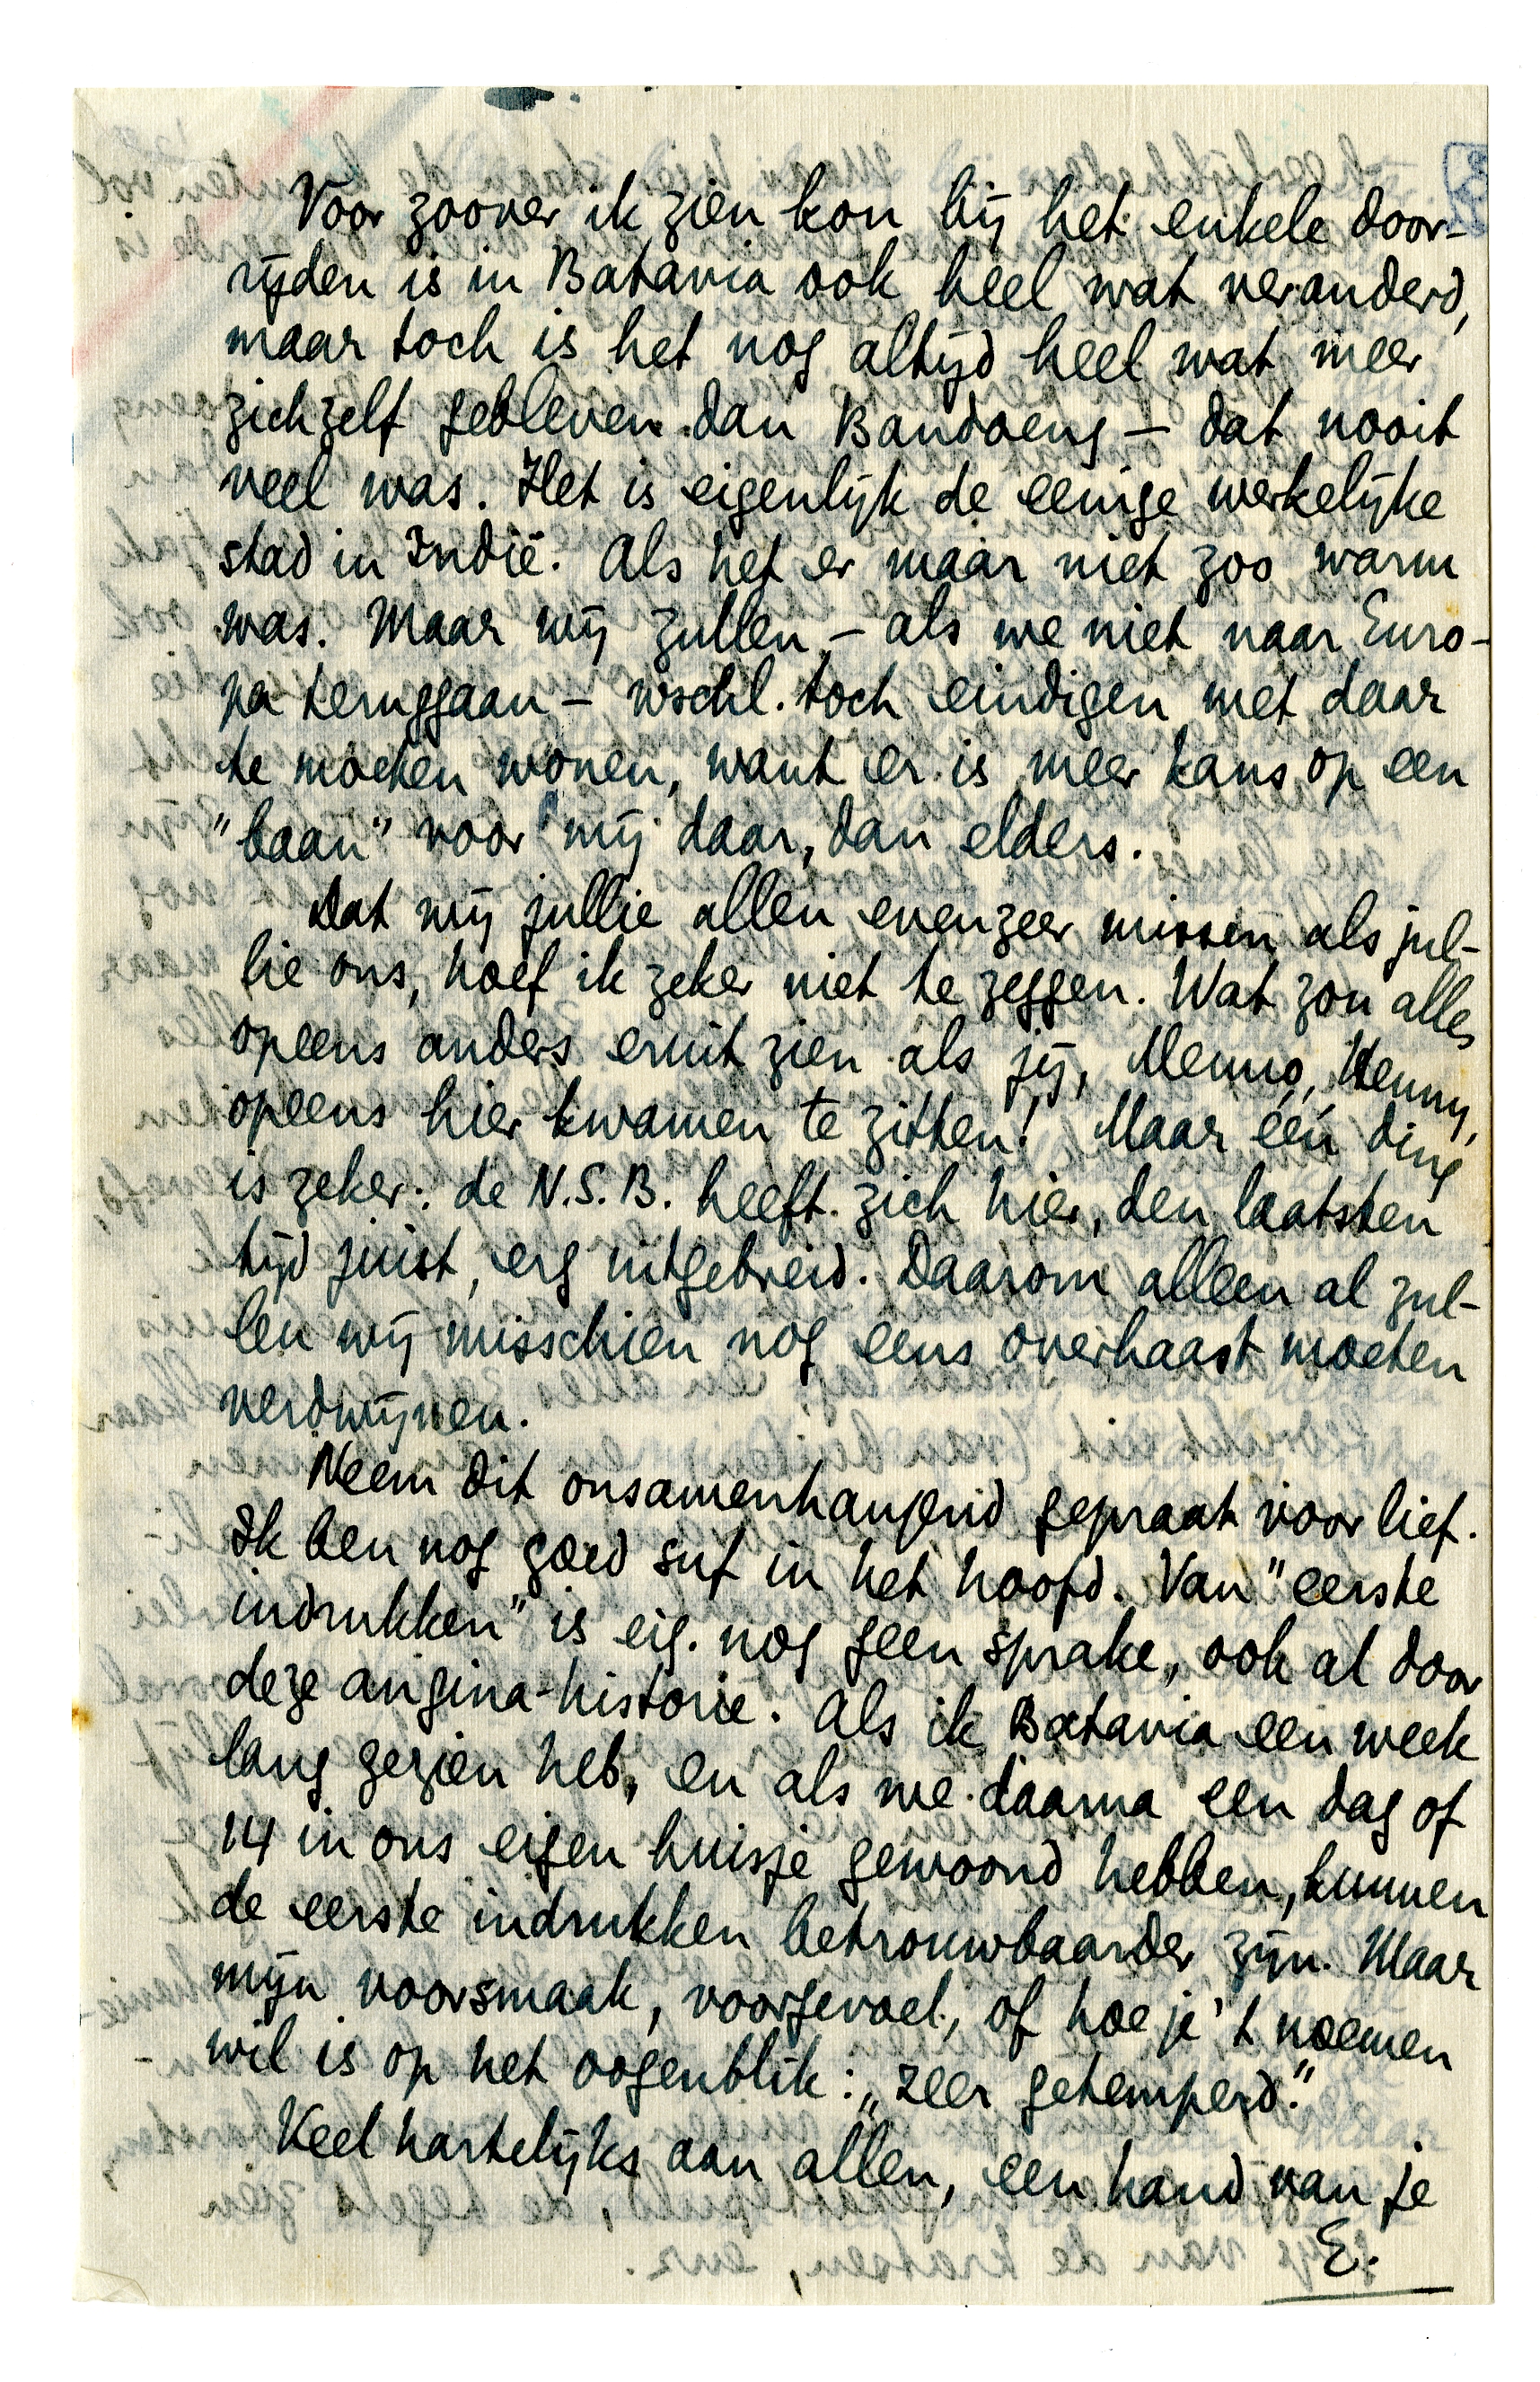 Voor zoover ik zien kon bij het enkele door-
rijden is in Batavia ook heel wat veranderd,
maar toch is het nog altijd heel wat meer
zichzelf gebleven dan Bandoeng – dat nooit
veel was. Het is eigenlijk de eenige werkelijke
stad in Indië. Als het er maar niet zoo warm
was. Maar wij zullen – als we niet naar Euro-
pa teruggaan – wschl. toch eindigen met daar
te moeten wonen, want er is meer kans op een
"baan" voor mij daar, dan elders.
Dat wij jullie allen evenzeer missen als jul-
lie ons, hoef ik zeker niet te zeggen. Wat zou alles
opeens anders eruit zien als jij, Menno, Henny,
opeens hier kwamen te zitten! Maar één ding
is zeker: de N.S.B. heeft zich hier, den laatsten
tijd juist, erg uitgebreid. Daarom alleen al zul-
len wij misschien nog eens overhaast moeten
verdwijnen.
Neem dit onsamenhangend gepraat voor lief.
Ik ben nog goed suf in het hoofd. Van "eerste
indrukken" is eig. nog geen sprake, ook al door
deze angina-historie. Als ik Batavia een week
lang gezien heb, en als we daarna een dag of
14 in ons eigen huisje gewoond hebben, kunnen
de eerste indrukken betrouwbaarder zijn. Maar
mijn voorsmaak, voorgevoel, of hoe je 't noemen
wil is op het oogenblik: „zeer getemperd."
Veel hartelijks aan allen, een hand van je
E.